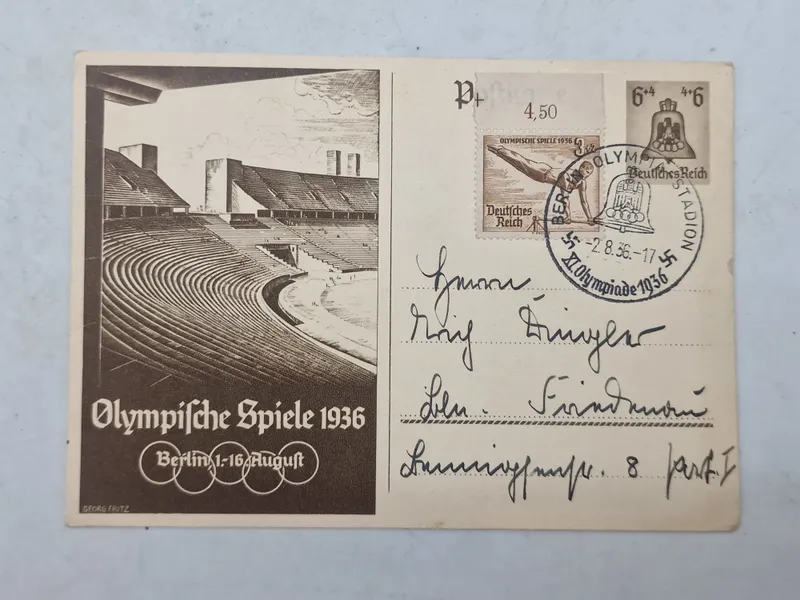 Olympische Spiele 1936
Berlin 1.-16. August
GEORG FRITZ
P+
4,50
OLYMPISCHE SPIELE 1936
Deutsches
Reich
6+4 4+6
Deutsches Reich
BERLIN OLYMPIA-STADION
-2.8.36.-17
XI. Olympiade 1936
Herrn
Erich Dingler
Bln. Friedenau
Bennigsenstr. 8 Part. I